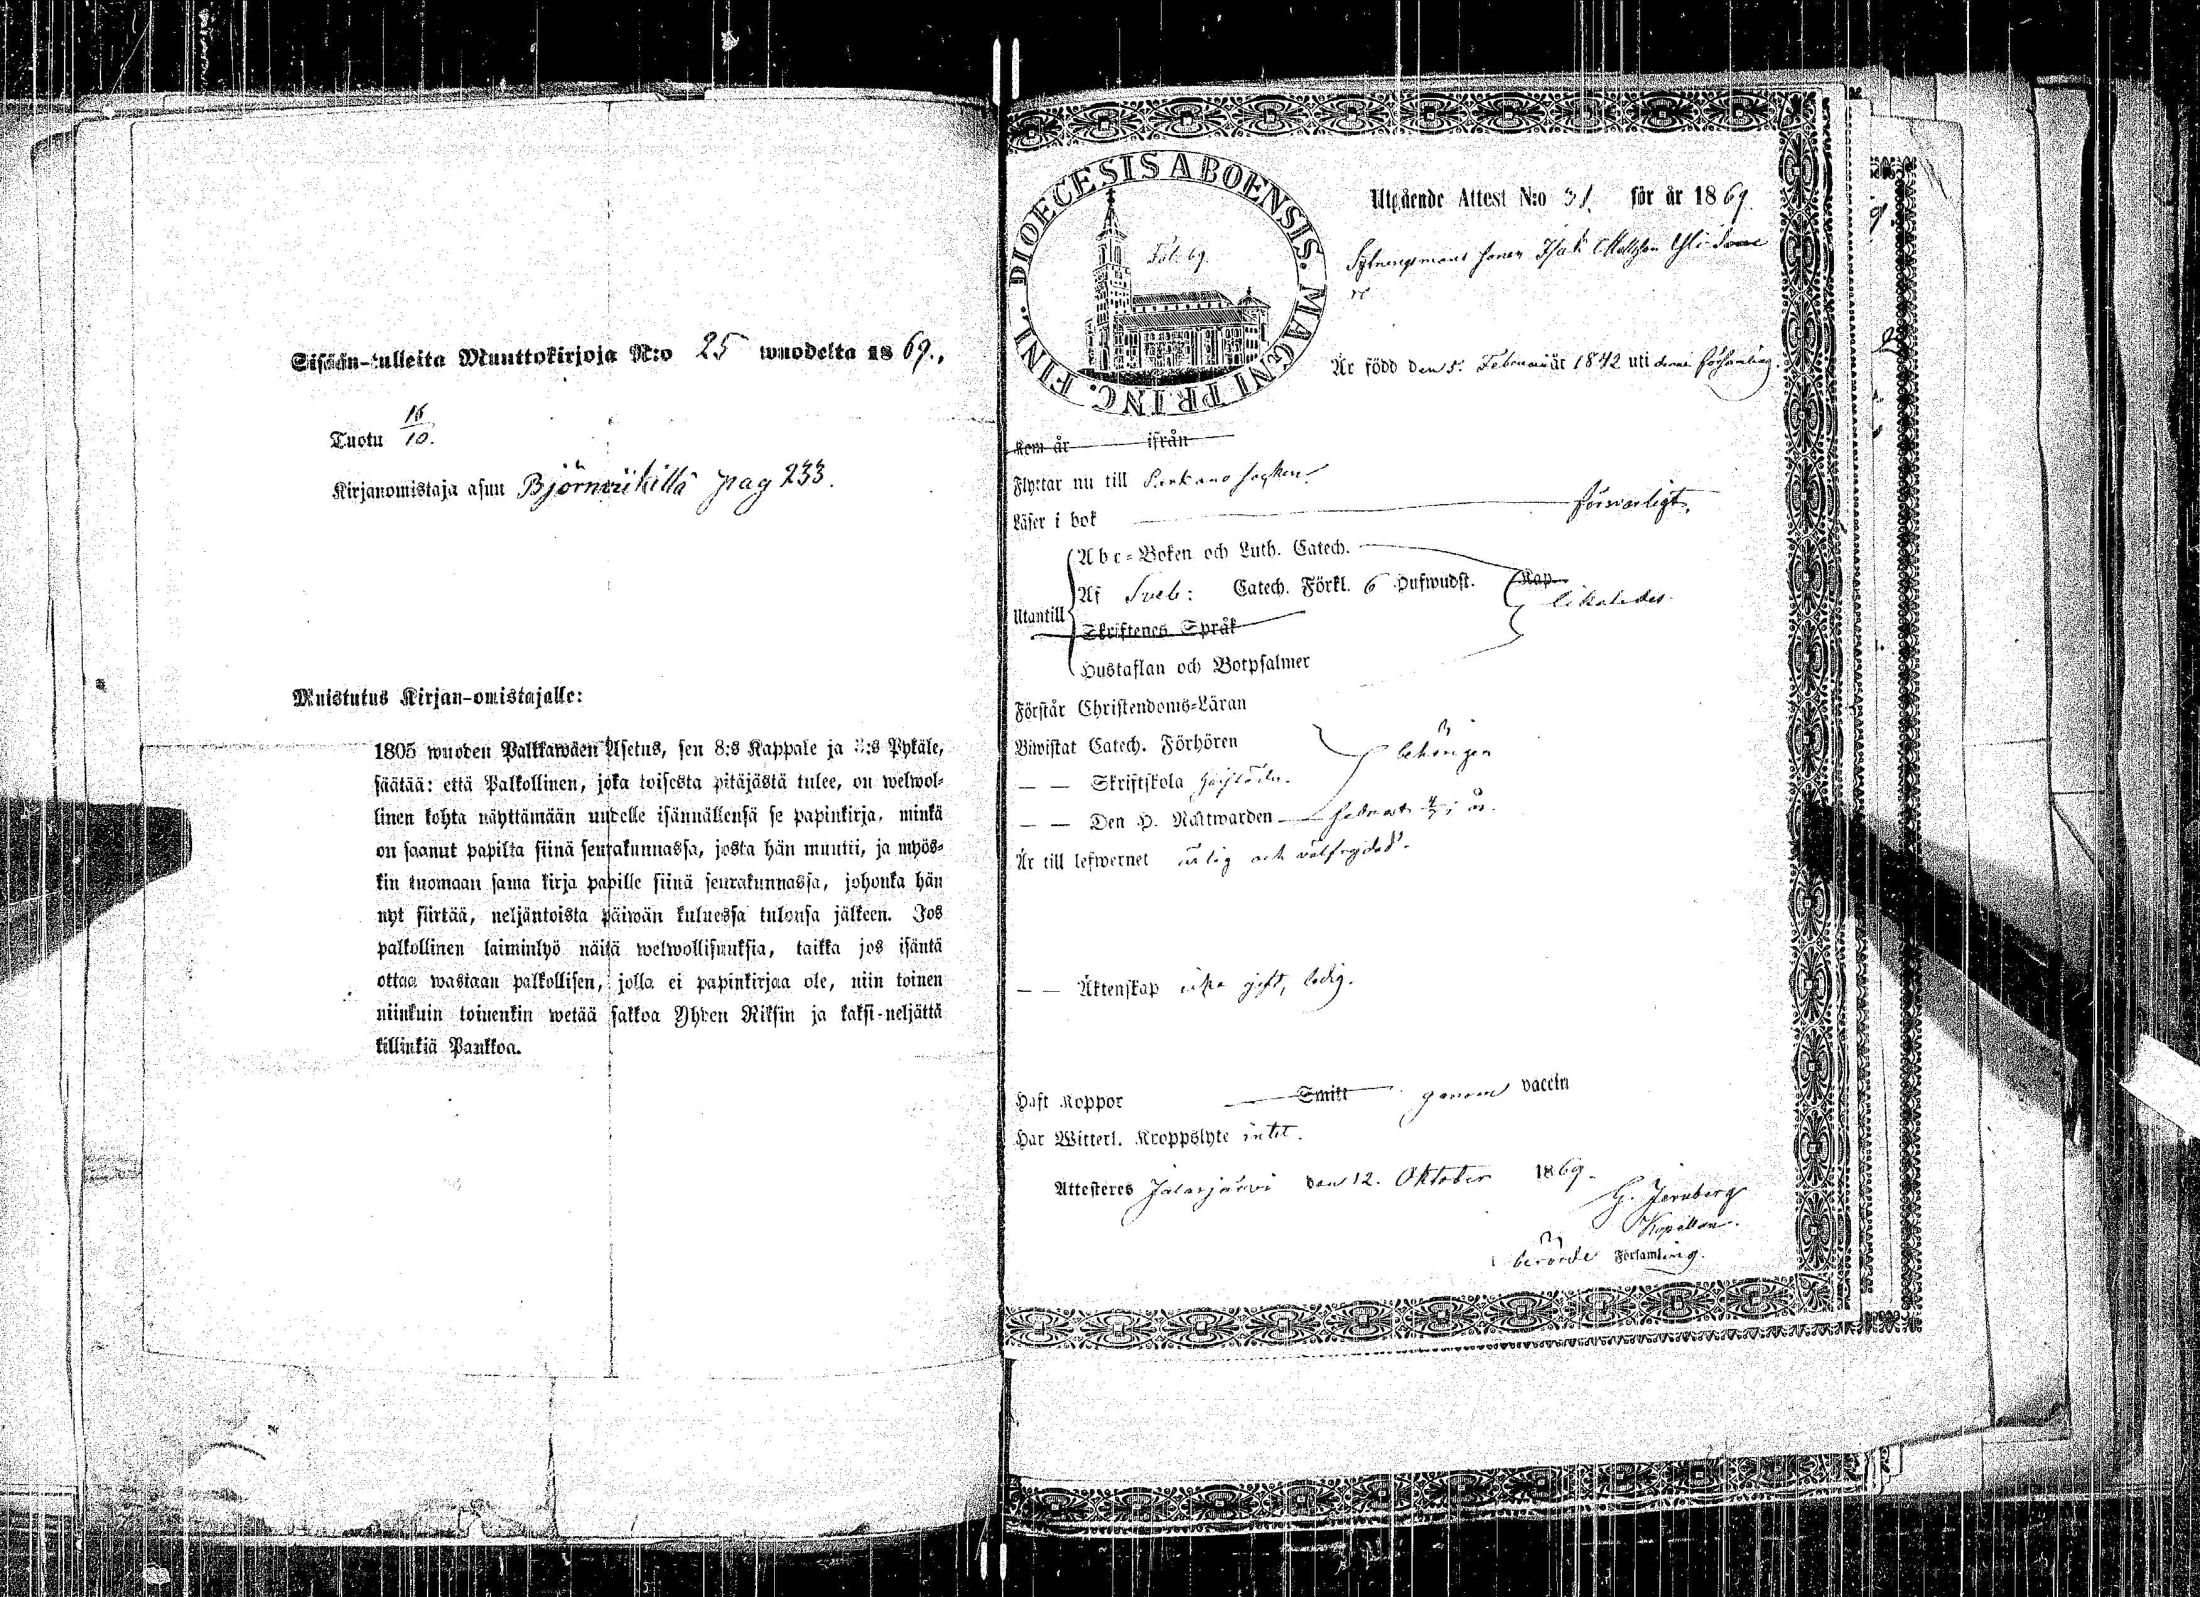 Sisään-tulleita Muuttokirjoja N:o 25 wuodelta 1869.
Tuotu 16/10.
Kirjanomistaja asuu Björnvikillä pag 233.
Muistutus Kirjan-omistajalle:
1805 wuoden Palkkawäen Asetus, sen 8:s Kappale ja 3:s Pykäle,
säätää: että Palkollinen, joka toisesta pitäjästä tulee, on welwol-
linen kohta näyttämään uudelle isännällensä se papinkirja, minkä
on saanut papilta siinä seurakunnassa, josta hän muutti, ja myös-
kin tuomaan sama kirja papille siinä seurakunnassa, johonka hän
nyt siirtää, neljäntoista päiwän kuluessa tulonsa jälkeen. Jos
palkollinen laiminlyö näitä welwollisuuksia, taikka jos isäntä
ottaa wastaan palkollisen, jolla ei papinkirjaa ole, niin toinen
niinkuin toinenkin wetää sakkoa Yhden Riksin ja kaksi-neljättä
killinkiä Pankkoa.
DIOECESIS ABOENSIS. MAGNI PRINC. FINL.
Fol. 69.
Utgående Attest N:o 31. för år 1869.
Sytningsmans sonen Isak Mattsson Yli
Är född den 5. Februarii år 1842 uti denna församling.
Kom år ifrån
Flyttar nu till Parkano socken.
Läser i bok försvarligt.
Utantill
Abc-Boken och Luth. Catech.
Af Sveb: Catech. Förkl. 6 Hufwudst. Kap.
likaledes.
Skriftenes Språk
Hustaflan och Botpsalmer
Förstår Christendoms-Läran
Biwistat Catech. Förhören behörigen
— — Skriftskola
— — Den H. Nattwarden
Är till lefwernet ärlig och välfrejdad.
— — Äktenskap icke gift, ledig.
Haft Koppor Smitt genom vaccin
Har Witterl. Kroppslyte intet.
Attesteres Jalasjärvi den 12. Oktober 1869.
G. Jernberg
Kapellan.
i berörde Församling.